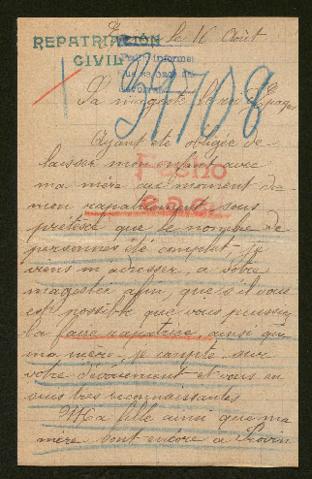 REPATRIACIÓN
CIVIL
le 16 Août
37708
Sa magesté le roi
Ayant été obligée de
laisser mon enfant avec
ma mère au moment de
mon rapatriement sous
prétexte que le nombre de
personnes été complet je
viens m adresser, a votre
magesté afin que s'il vous
est possible que vous puissiez
la faire rapatriée ainsi que
ma mère, je compte sur
votre dévouement et vous en
suis très reconnaissantes
Ma fille ainsi que ma
mère sont encore a Provin